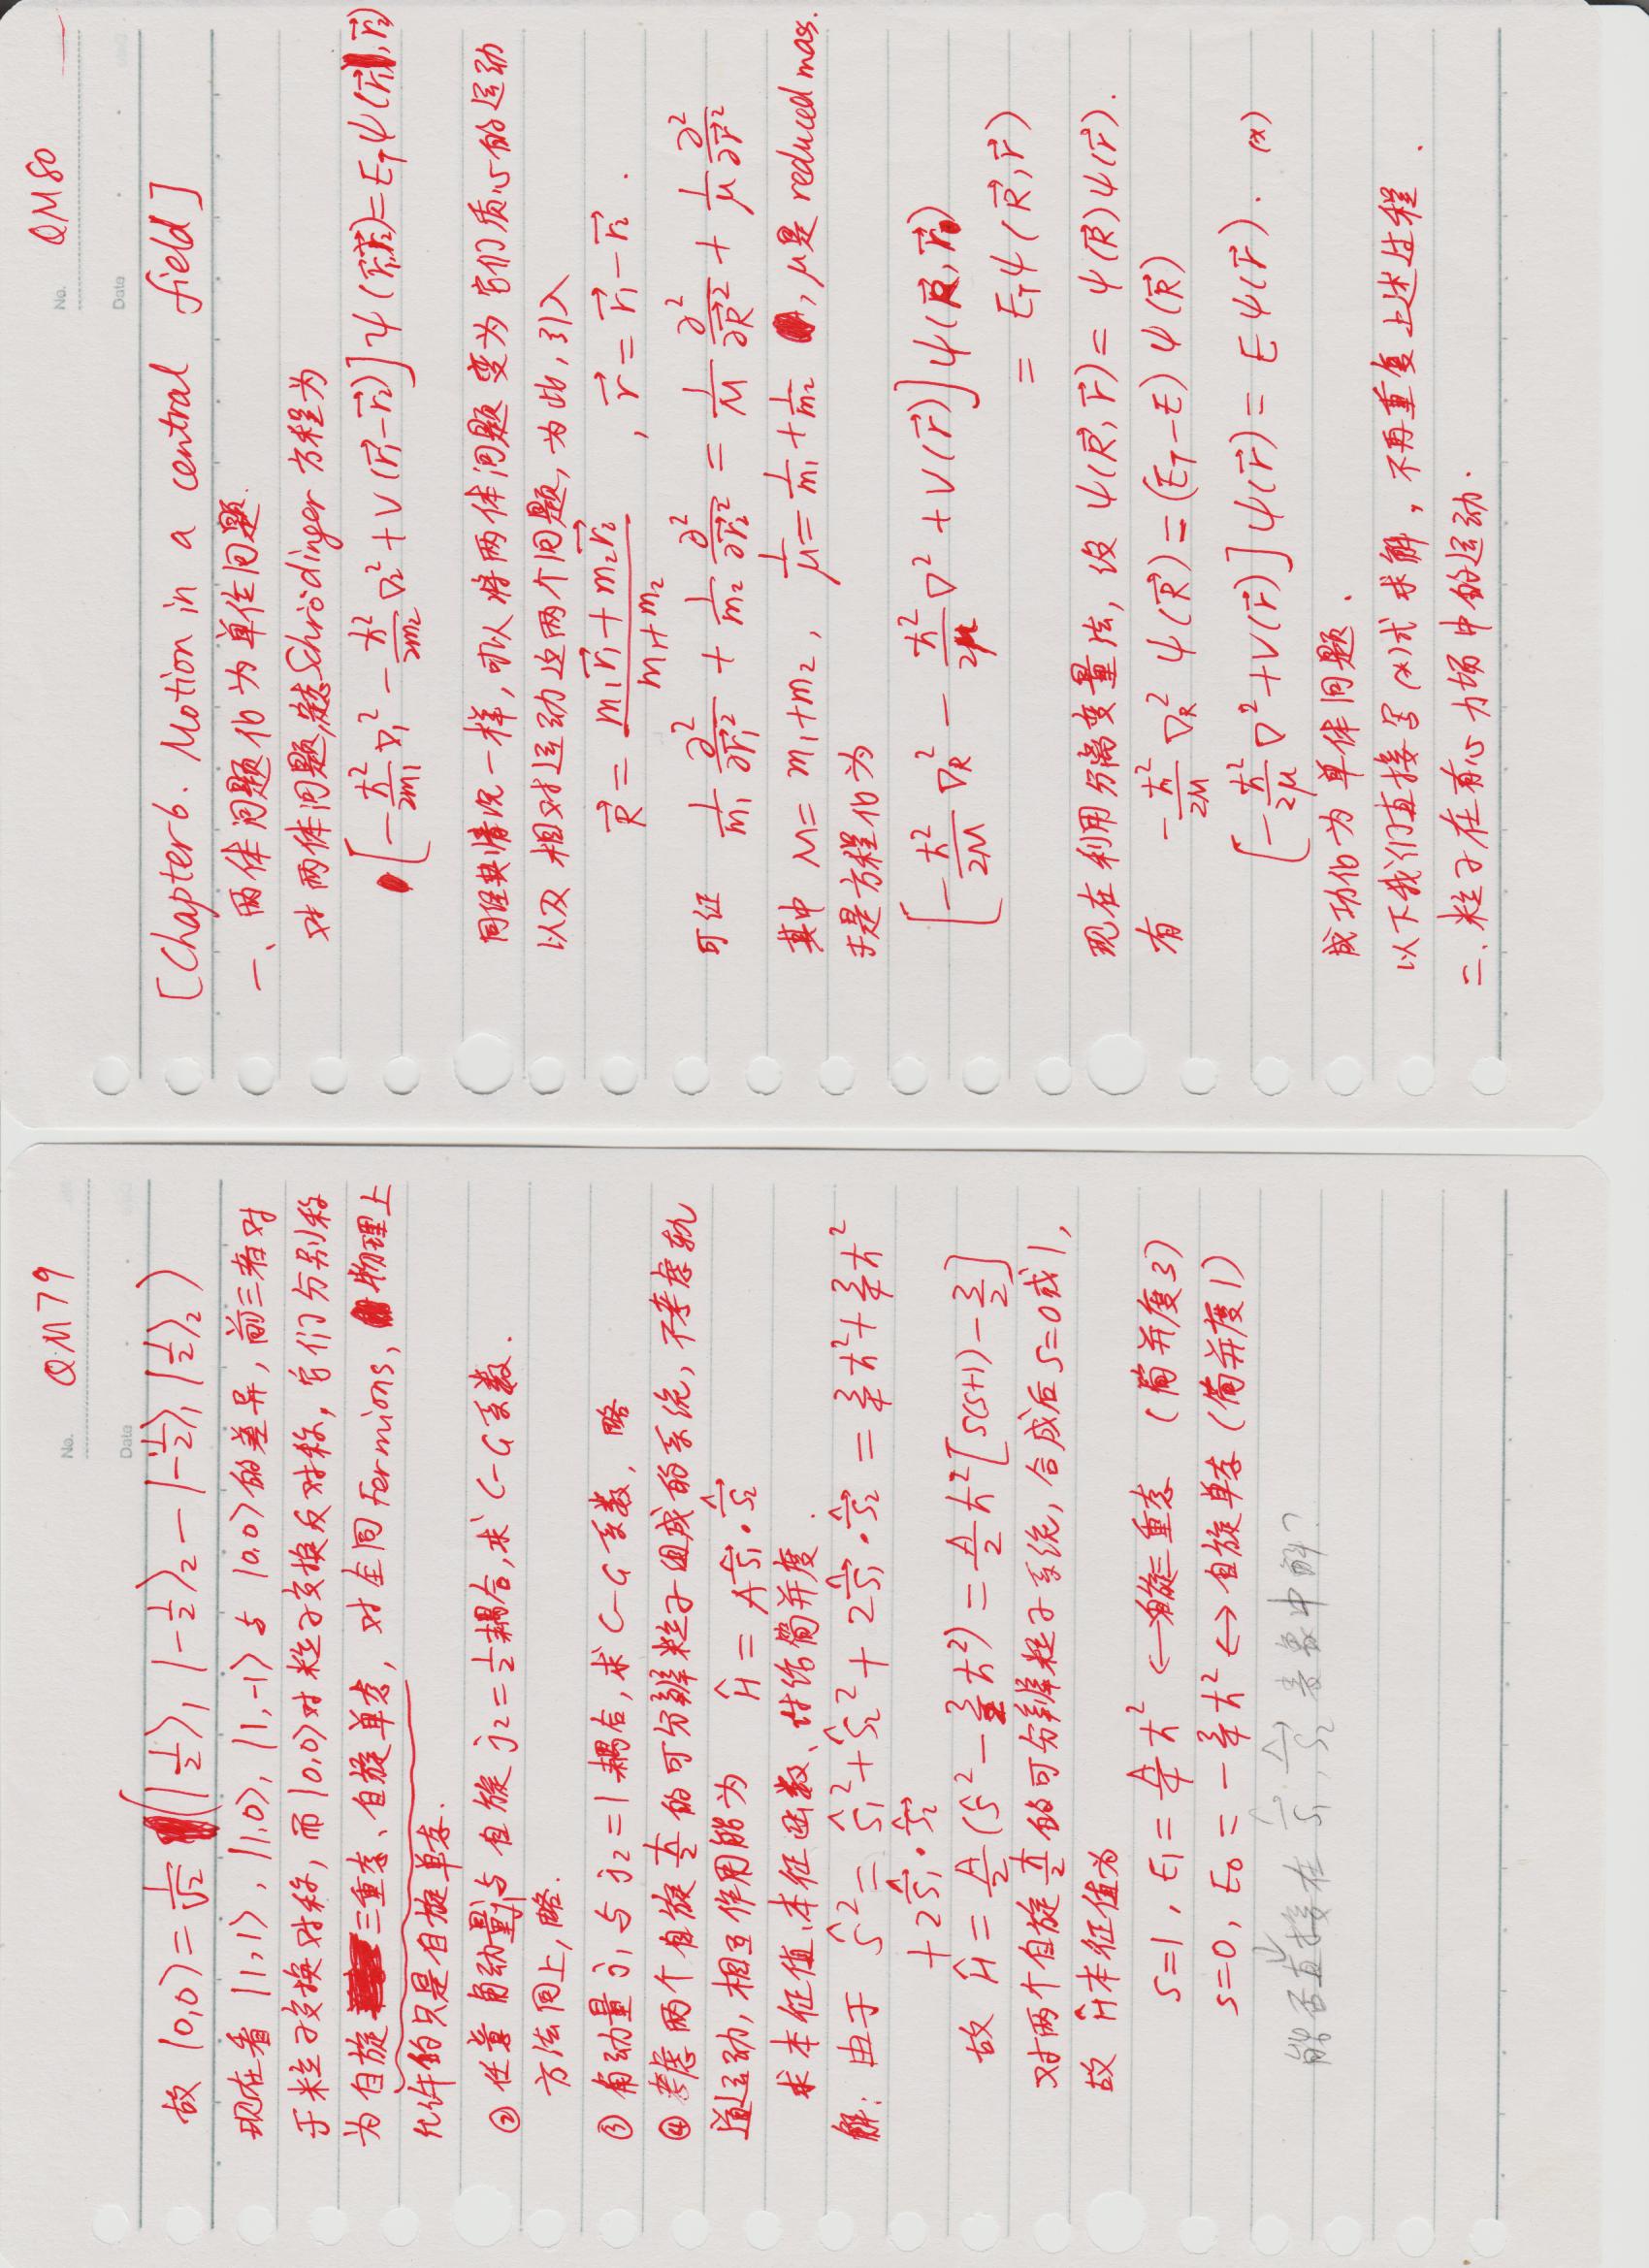 No. QM79
Date
故 |0,0⟩ = 1/√2 (|1/2⟩₁ |-1/2⟩₂ - |-1/2⟩₁ |1/2⟩₂)
现在看 |1,1⟩, |1,0⟩, |1,-1⟩ 与 |0,0⟩的差异, 前三者对
于粒子交换对称, 而|0,0⟩对粒子交换反对称, 它们分别称
为自旋三重态、自旋单态, 对全同 Fermions, 物理上
允许的只是自旋单态.
② 任意角动量j₁与自旋 j₂=1/2耦合, 求C-G系数.
方法同上, 略.
③ 角动量 j₁ 与 j₂=1耦合, 求C-G系数, 略
④ 考虑两个自旋 ħ/2 的可分辨粒子组成的系统, 不考虑轨
道运动, 相互作用能为 Ĥ = A ŝ⃗₁·ŝ⃗₂
求本征值、本征函数、讨论简并度.
解: 由于 ŝ² = ŝ₁² + ŝ₂² + 2ŝ⃗₁·ŝ⃗₂ = 3/4 ħ² + 3/4 ħ²
+ 2ŝ⃗₁·ŝ⃗₂
故 Ĥ = A/2 (ŝ² - 3/2 ħ²) = A/2 ħ² [s(s+1) - 3/2]
对两个自旋 ħ/2 的可分辨粒子系统, 合成后 s=0或1,
故 Ĥ本征值为
s=1, E₁ = A/4 ħ² ↔ 自旋三重态 (简并度3)
s=0, E₀ = -3/4 ħ² ↔ 自旋单态 (简并度1)
能否直接在 ŝ⃗₁, ŝ⃗₂ 表象中解?
No. QM80
Date
[Chapter6. Motion in a central field]
一、两体问题化为单体问题.
对两体问题, 定态Schrödinger 方程为
[-ħ²/2m₁ ∇₁² - ħ²/2m₂ ∇₂² + V(r⃗₁-r⃗₂)] ψ(r⃗₁,r⃗₂) = E_T ψ(r⃗₁,r⃗₂)
同经典情况一样, 可以将两体问题变为它们质心的运动
以及相对运动这两个问题, 为此, 引入
R⃗ = (m₁r⃗₁+m₂r⃗₂)/(m₁+m₂), r⃗ = r⃗₁-r⃗₂.
可证 1/m₁ ∂²/∂r⃗₁² + 1/m₂ ∂²/∂r⃗₂² = 1/M ∂²/∂R⃗² + 1/μ ∂²/∂r⃗²
其中 M = m₁+m₂, 1/μ = 1/m₁ + 1/m₂, μ是 reduced mass.
于是方程化为
[-ħ²/2M ∇_R² - ħ²/2μ ∇² + V(r⃗)] ψ(R⃗,r⃗)
= E_T ψ(R⃗,r⃗)
现在利用分离变量法, 设 ψ(R⃗,r⃗) = ψ(R⃗)ψ(r⃗).
有 -ħ²/2M ∇_R² ψ(R⃗) = (E_T-E) ψ(R⃗)
[-ħ²/2μ ∇² + V(r⃗)] ψ(r⃗) = E ψ(r⃗). (*)
成功化为单体问题.
以下我们直接写(*)式求解, 不再重复上述过程.
二. 粒子在有心力场中的运动.